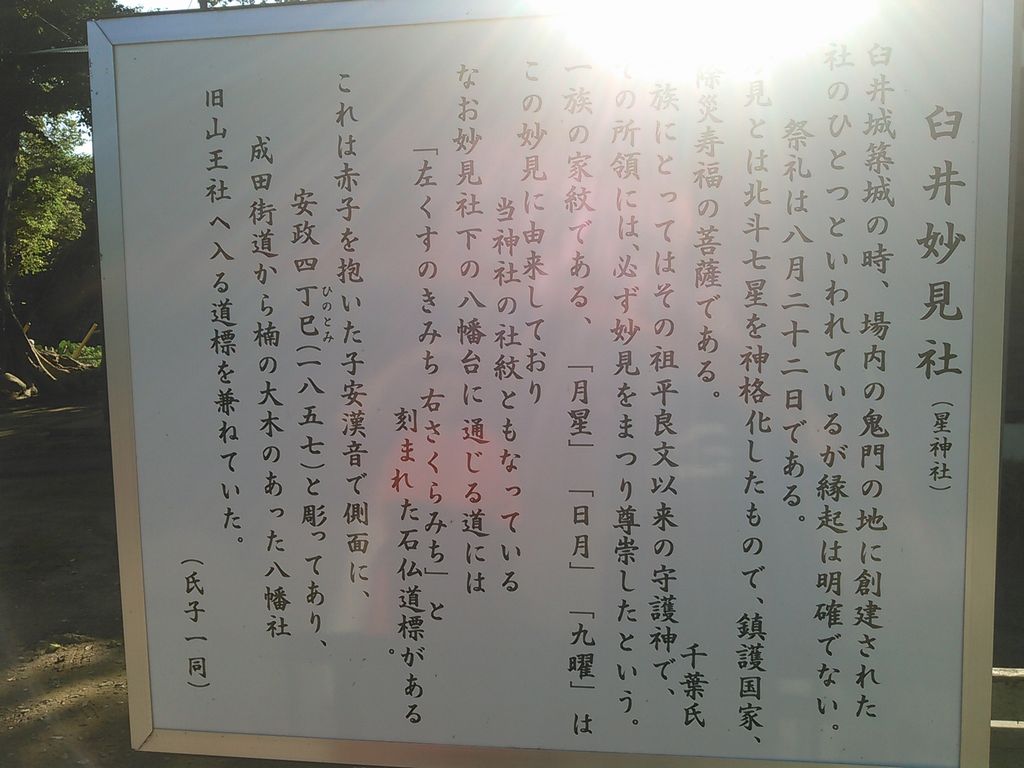 臼井妙見社(星神社)
臼井城築城の時、場内の鬼門の地に創建された
社のひとつといわれているが縁起は明確でない。
祭礼は八月二十二日である。
見とは北斗七星を神格化したもので、鎮護国家、
除災寿福の菩薩である。
千葉氏
族にとってはその祖平良文以来の守護神で、
の所領には、必ず妙見をまつり尊崇したという。
一族の家紋である、「月星」「日月」「九曜」は
この妙見に由来しており
当神社の社紋ともなっている
なお妙見社下の八幡台に通じる道には
「左くすのきみち 右さくらみち」と
刻まれた石仏道標がある。
これは赤子を抱いた子安漢音で側面に、
安政四丁巳(一八五七)と彫ってあり、
ひのとみ
成田街道から楠の大木のあった八幡社
旧山王社へ入る道標を兼ねていた。
(氏子一同)